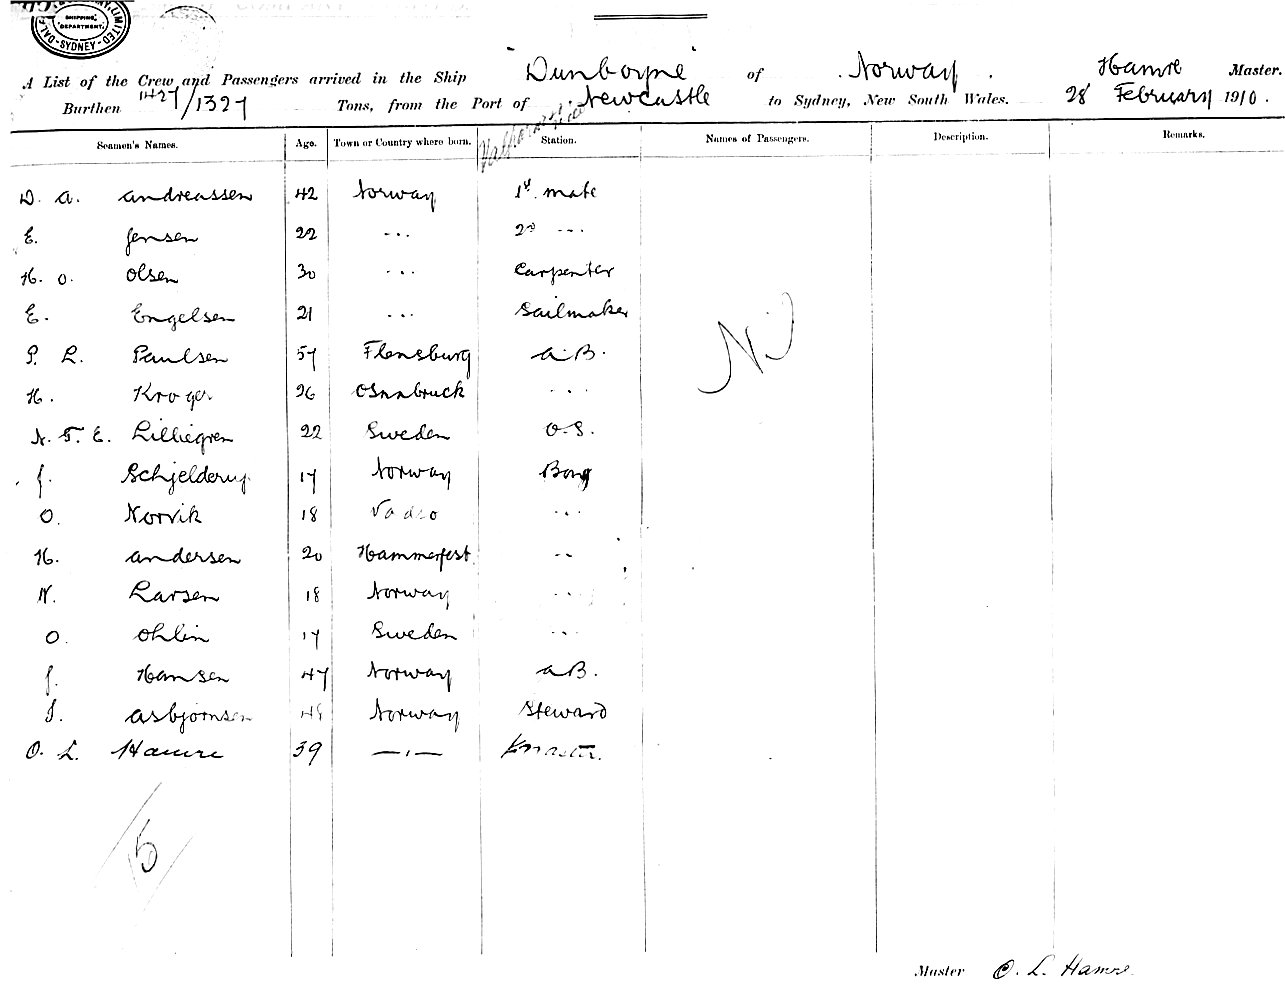 LIMITED
SHIPPING
DEPARTMENT.
SYDNEY
A List of the Crew and Passengers arrived in the Ship "Dunboyne" of Norway. Hamre Master.
Burthen 1427/1327 Tons, from the Port of Newcastle to Sydney, New South Wales. 28 February 1910.
Seamen's Names. Age. Town or Country where born. Station. Names of Passengers. Description. Remarks.
D. A. Andreassen 42 Norway 1st mate
E. Jensen 22 ... 2nd ...
H. O. Olsen 30 ... Carpenter
E. Engelsen 21 ... Sailmaker
P. L. Paulsen 57 Flensburg A.B.
H. Kroger 26 Osnabruck ...
Nil
A. F. E. Lilliegren 22 Sweden O.S.
J. Schjelderup 17 Norway Boy
O. Norvik 18 Vadso ...
H. Andersen 20 Hammerfest ...
N. Larsen 18 Norway ...
O. Ohlin 17 Sweden ...
J. Hansen 47 Norway A.B.
Asbjornsen Norway Steward
O. L. Hamre 39 —,— Master.
15
Master O. L. Hamre